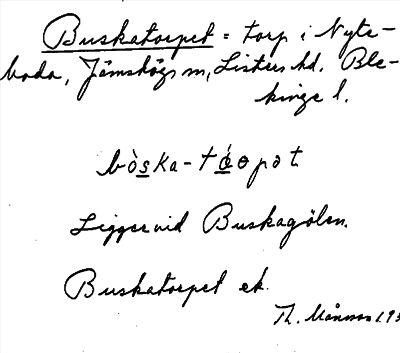 Buskatorpet = torp i Nyte-
boda, Jämshögs sn, Listers hd. Ble-
kinge l.
bòska-tóspat
Ligger vid Buskagölen.
Buskatorpet ek.
Th. Månsson